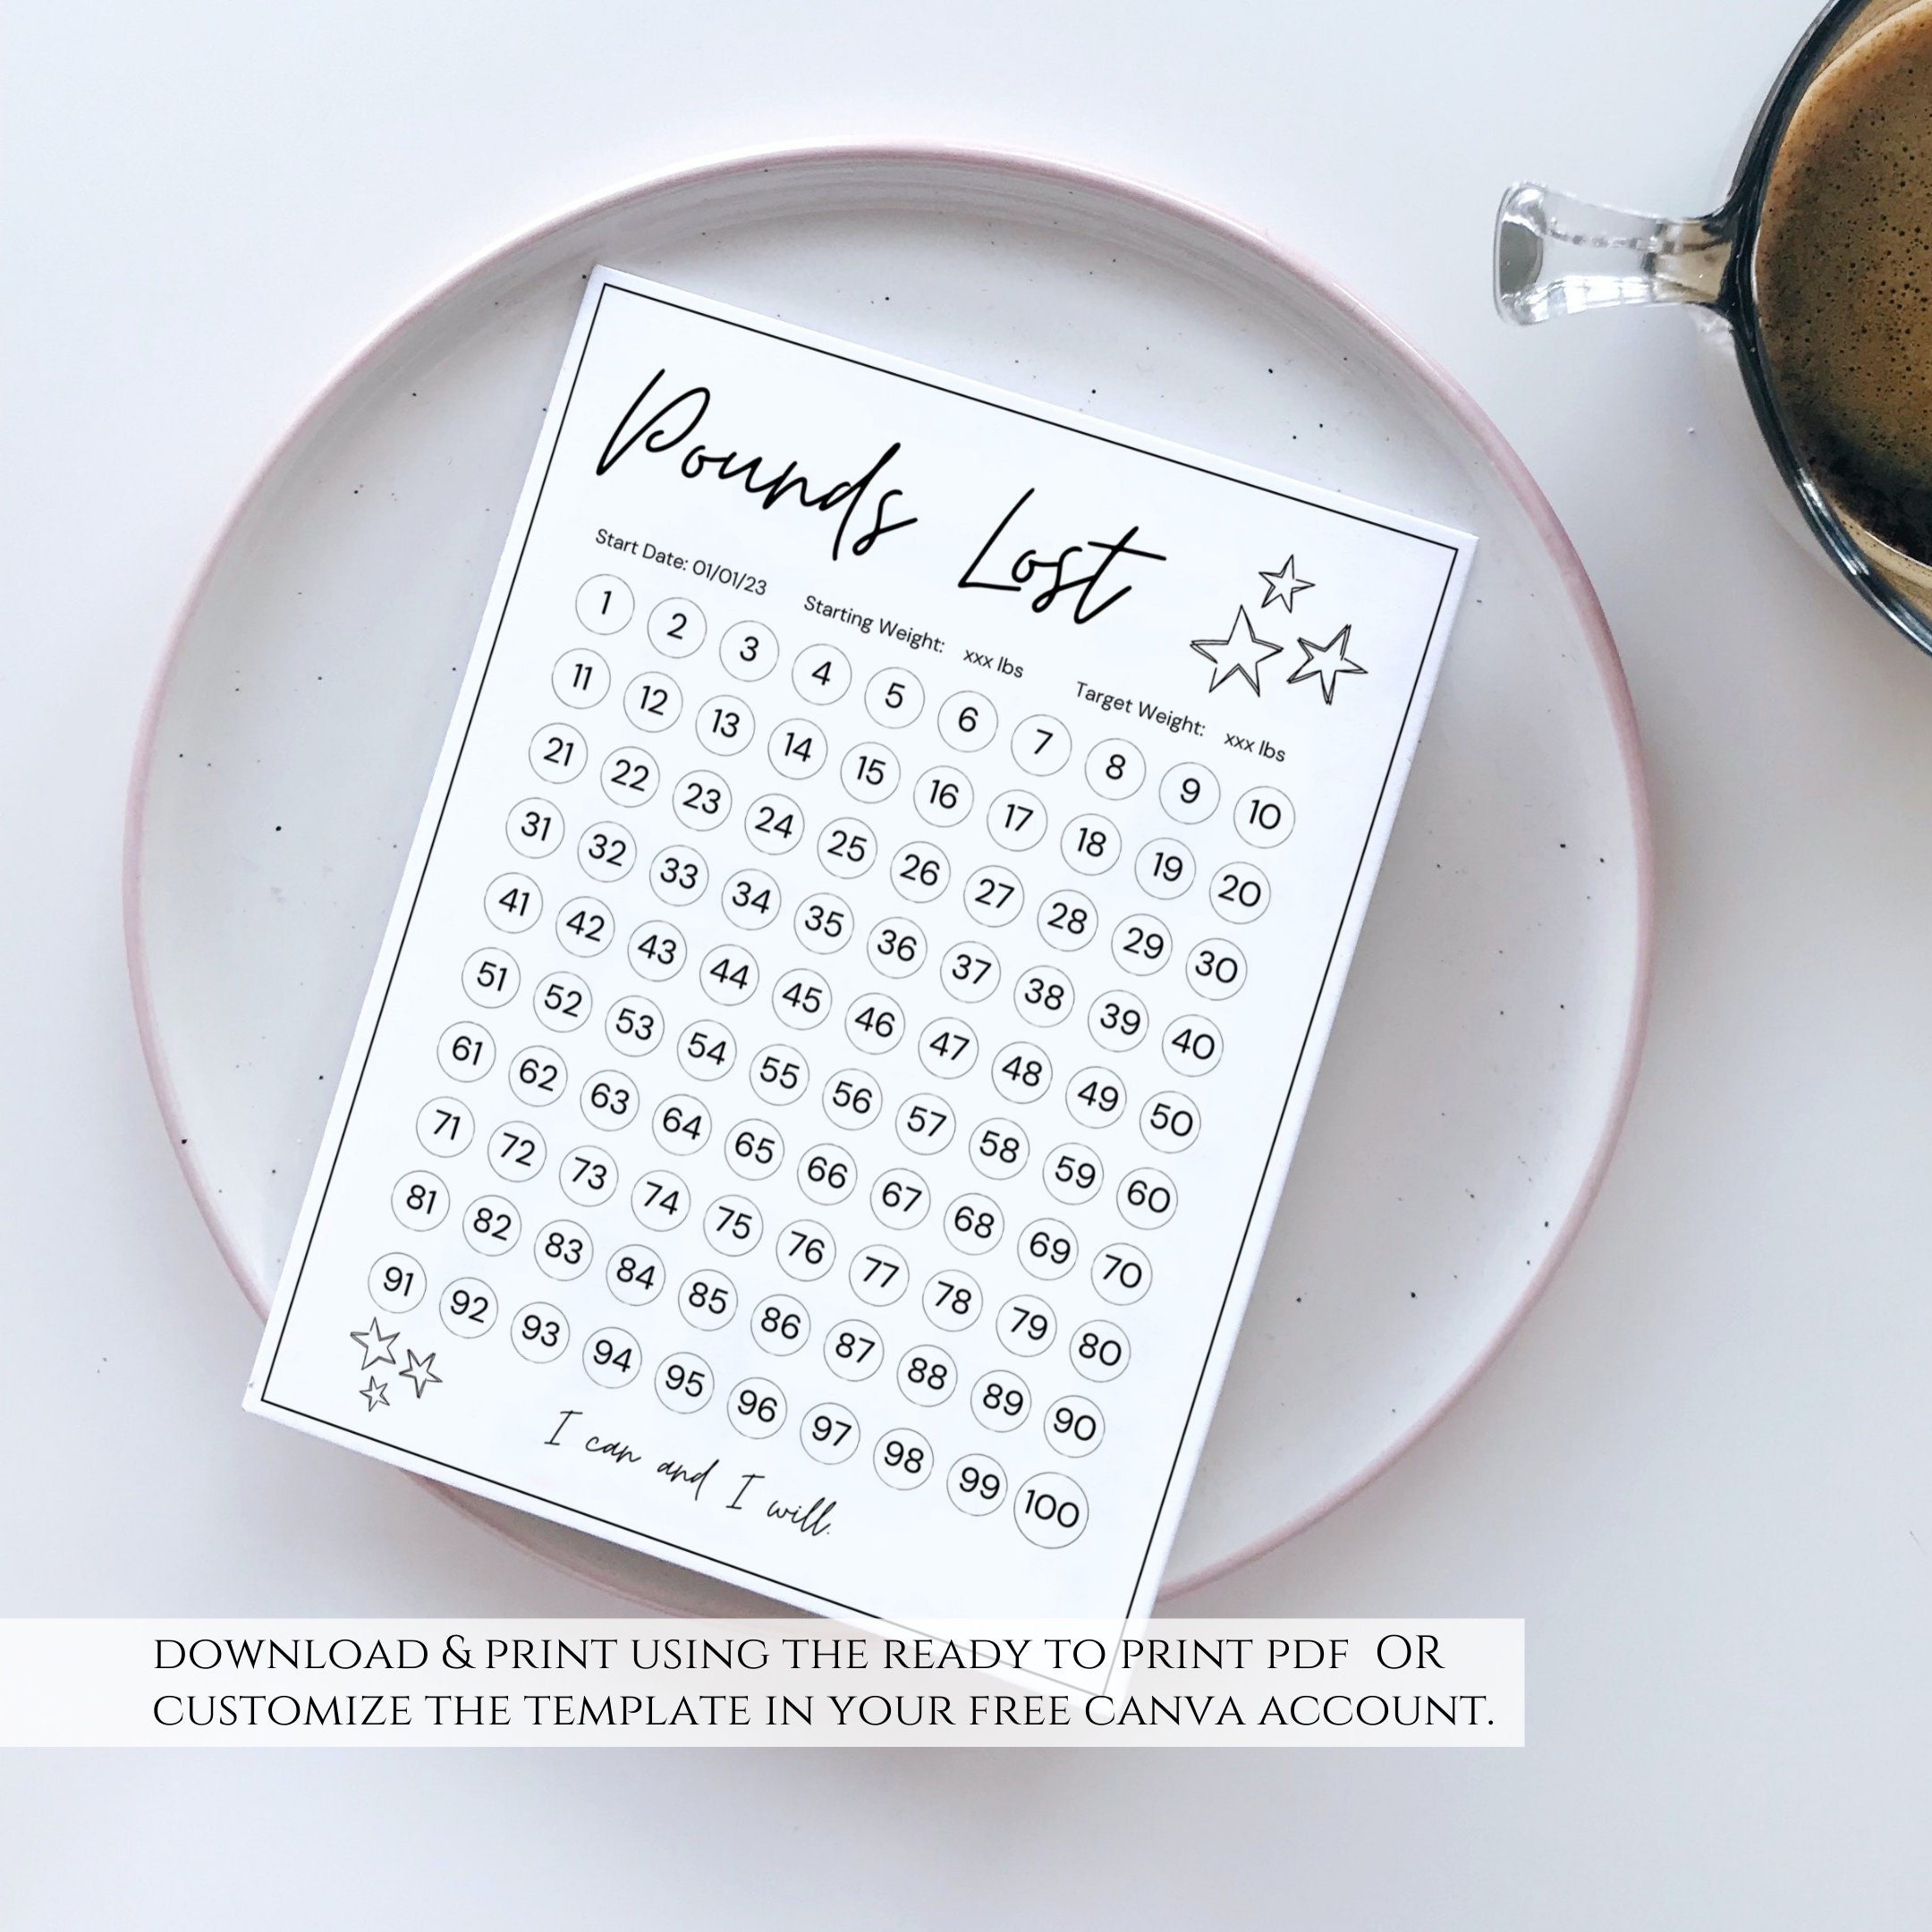 Pounds Lost
Start Date: 01/01/23 Starting Weight: xxx lbs Target Weight: xxx lbs
1 2 3 4 5 6 7 8 9 10
11 12 13 14 15 16 17 18 19 20
21 22 23 24 25 26 27 28 29 30
31 32 33 34 35 36 37 38 39 40
41 42 43 44 45 46 47 48 49 50
51 52 53 54 55 56 57 58 59 60
61 62 63 64 65 66 67 68 69 70
71 72 73 74 75 76 77 78 79 80
81 82 83 84 85 86 87 88 89 90
91 92 93 94 95 96 97 98 99 100
I can and I will.
DOWNLOAD & PRINT USING THE READY TO PRINT PDF OR
CUSTOMIZE THE TEMPLATE IN YOUR FREE CANVA ACCOUNT.